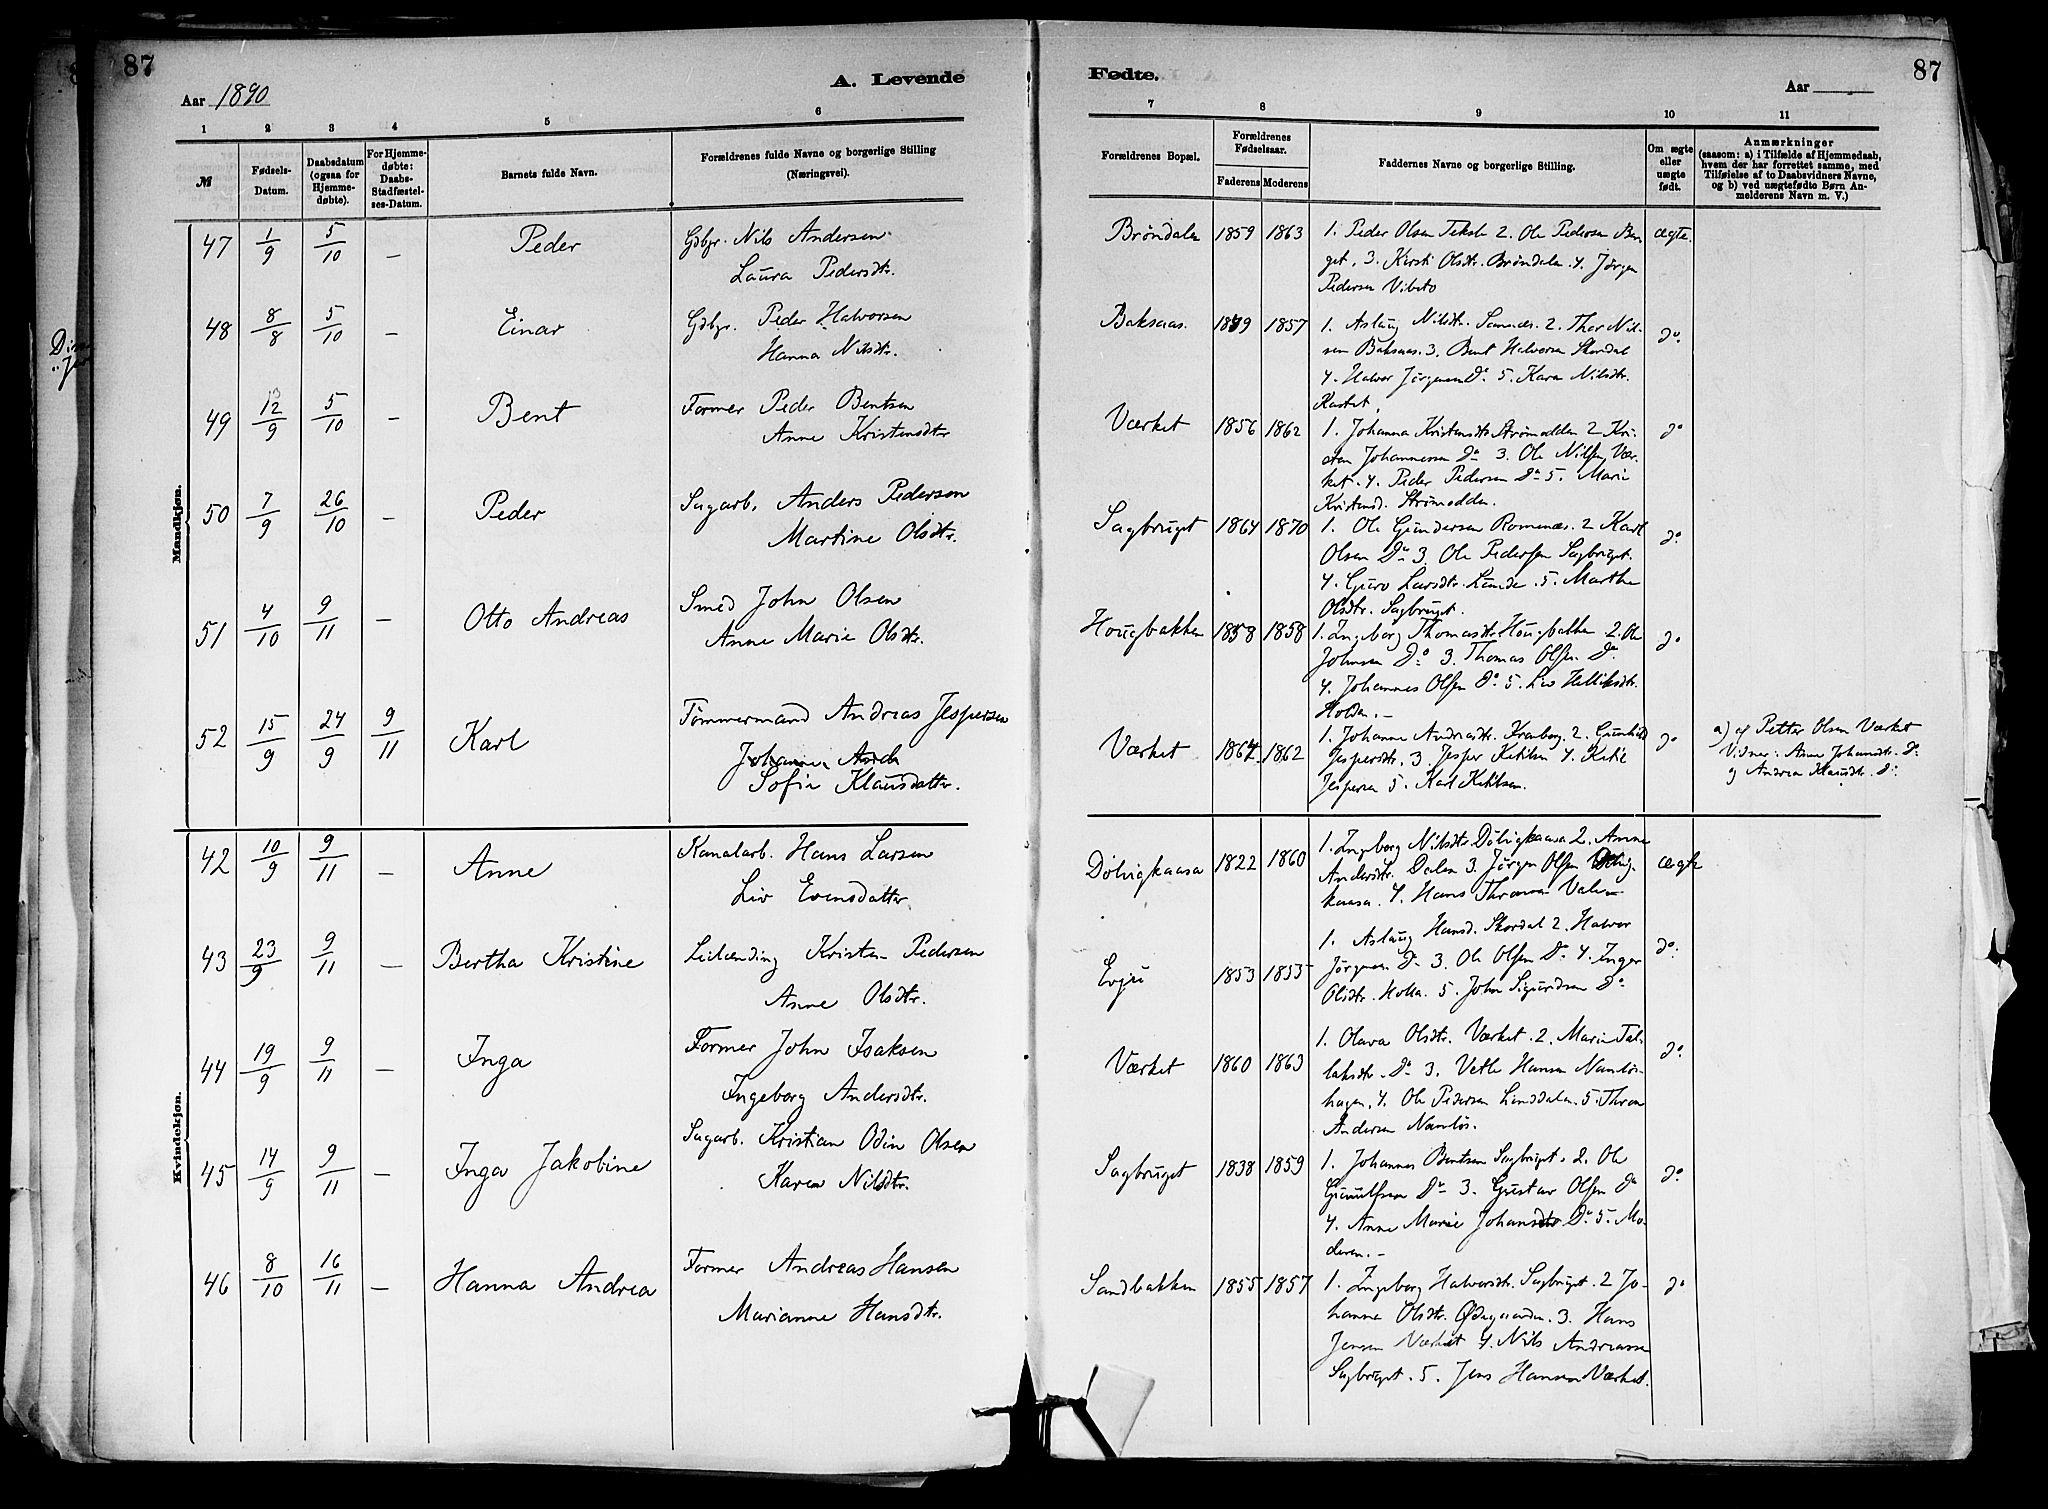 87
A. Levende
Aar 1890
1 2 3 4 5 6
№
Fødsels-
Datum.
Daabsdatum
(ogsaa for
Hjemme-
døbte).
For Hjemme-
døbte:
Daabs-
Stadfæstel-
ses-Datum.
Barnets fulde Navn.
Forældrenes fulde Navne og borgerlige Stilling
(Næringsvei).
Mandkjøn.
47 1/9 5/10 – Peder Gdbgr. Nils Andersen
Laura Pedersdtr.
48 8/8 5/10 – Einar Gdbgr. Peder Halvorsen
Hanna Nilsdtr.
49 12/9 5/10 – Bent Former Peder Bentsen
Anne Kristensdtr
50 7/9 26/10 – Peder Sagarb. Anders Pedersen
Martine Olsdtr.
51 4/10 9/11 – Otto Andreas Smed John Olsen
Anne Marie Olsdtr.
52 15/9 24/9 9/11 Karl Tømmermand Andreas Jespersen
Johanne Andr
Sofie Klausdatter.
Kvindekjøn.
42 10/9 9/11 – Anne Kanalarb. Hans Larsen
Liv Evensdatter
43 23/9 9/11 – Bertha Kristine Leilænding Kristen Pedersen
Anne Olsdtr.
44 19/9 9/11 – Inga Former John Isaksen
Ingeborg Andersdtr.
45 14/9 9/11 – Inga Jakobine Sagarb. Kristian Odin Olsen
Karen Nilsdtr.
46 8/10 16/11 – Hanna Andrea Former Andreas Hansen
Marianne Hansdtr.
Fødte.
87
Aar
7 8 9 10 11
Forældrenes Bopæl.
Forældrenes
Fødselsaar.
Faderens Moderens
Faddernes Navne og borgerlige Stilling.
Om ægte
eller
uægte
født.
Anmærkninger
(saasom: a) i Tilfælde af Hjemmedaab,
hvem der har forrettet samme, med
Tilføielse af to Daabsvidners Navne,
og b) ved uægtefødte Børn An-
melderens Navn m. V.)
Brøndalen 1859 1863 1. Peder Olsen Teksle 2. Ole Pedersen Ber- ægte.
get. 3. Kirsti Olsdtr. Brøndalen 4. Jørgen
Pedersen Vibeto
Baksaas. 1849 1857 1. Aslaug Nilsdtr. Sannæs. 2. Thor Nil- do.
sen Baksaas. 3. Bent Halvorsen Skordal
4. Halvor Jørgensen Do. 5. Karen Nilsdtr.
Værket 1856 1862 1. Johanna Kristensdtr. Strømodden 2 Kri- do
sten Johannessen Do 3. Ole Nilsen Vær-
ket. 4. Peder Pedersen Do 5. Marie
Kristensd. Strømodden.
Sagbruget 1864 1870 1. Ole Gundersen Romenæs. 2 Karl do.
Olsen Do 3. Ole Pedersen Sagbruget.
4. Guro Larsdtr. Lunde. 5. Marthe
Olsdtr. Sagbruget.
Hougbakken 1858 1858 1. Ingeborg Thomasdtr. Hougbakken 2. Ole do
Johnsen Do 3. Thomas Olsen Do
4. Johannes Olsen Do 5. Liv Helliksdtr.
Holden. –
Værket 1864 1862 1. Johanne Andreasdtr. Kranborg. 2. Gunhild do a) af Petter Olsen Værket
Jespersdtr. 3. Jesper Ketilsen 4. Ketil Vidner: Anne Johansdtr. Do
Jespersen 5. Karl Ketilsen. og Andrea Klausdtr. Do.
Dølvigkaasa 1822 1860 1. Ingeborg Nilsdtr. Dølvigkaasa 2. Anne ægte
Andersdtr. Dalen 3. Jørgen Olsen Dølvig-
kaasa. 4. Hans Thronsen Valen
Evju 1853 1855 1. Aslaug Hansd. Skordal 2. Halvor do.
Jørgensen Do 3. Ole Olsen Do 4. Inger
Olsdtr. Holla. 5. John Sigurdsen Do
Værket 1860 1863 1. Olava Olsdtr. Værket. 2. Marie Tal- do.
laksdtr. Do 3. Vetle Hansen Namløs-
hagen. 4. Ole Pedersen Linddalen. 5. Thron
Andersen Namløs.
Sagbruget 1838 1859 1. Johannes Bentsen Sagbruget. 2. Ole do.
Gunulfsen Do 3. Gustav Olsen Do
4. Anne Marie Johansdtr Do 5. Mo-
deren. –
Sandbakken 1855 1857 1. Ingeborg Halvorsdtr. Sagbruget. 2 Jo- do
hanna Olsdtr. Ødegaarden. 3. Hans
Jensen Værket 4. Nils Andreassen
Sagbruget. 5. Jens Hansen Værket.